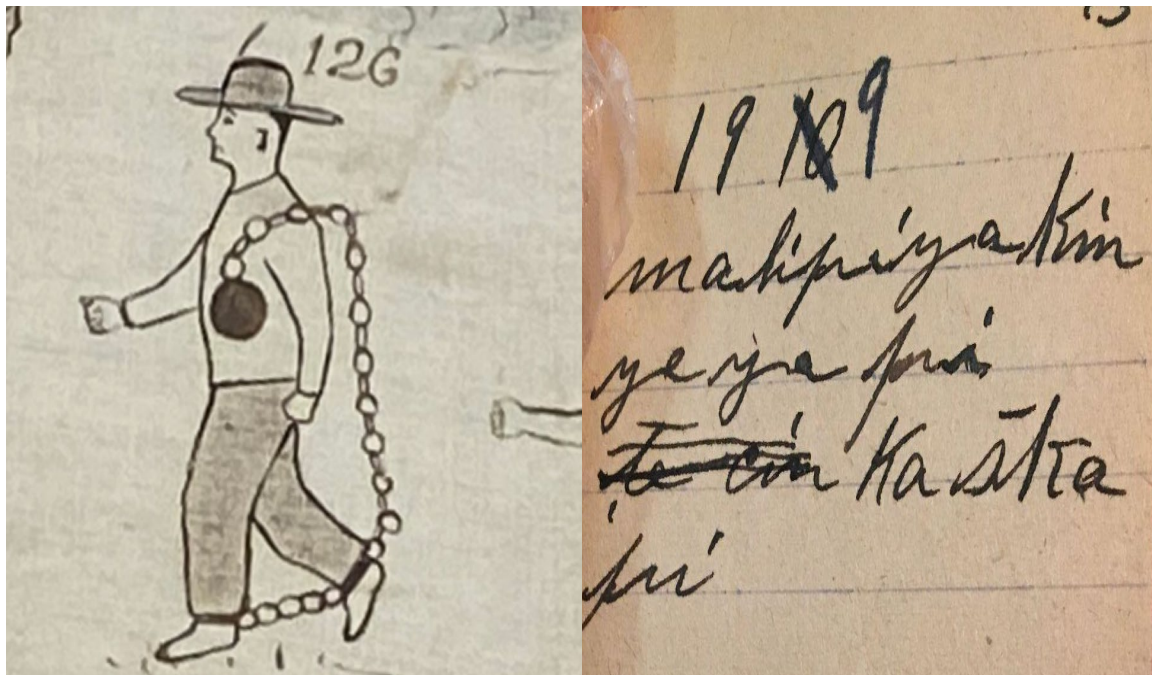 126
19 9
mahpiya Kin
yeya pi
Ka ška
pi